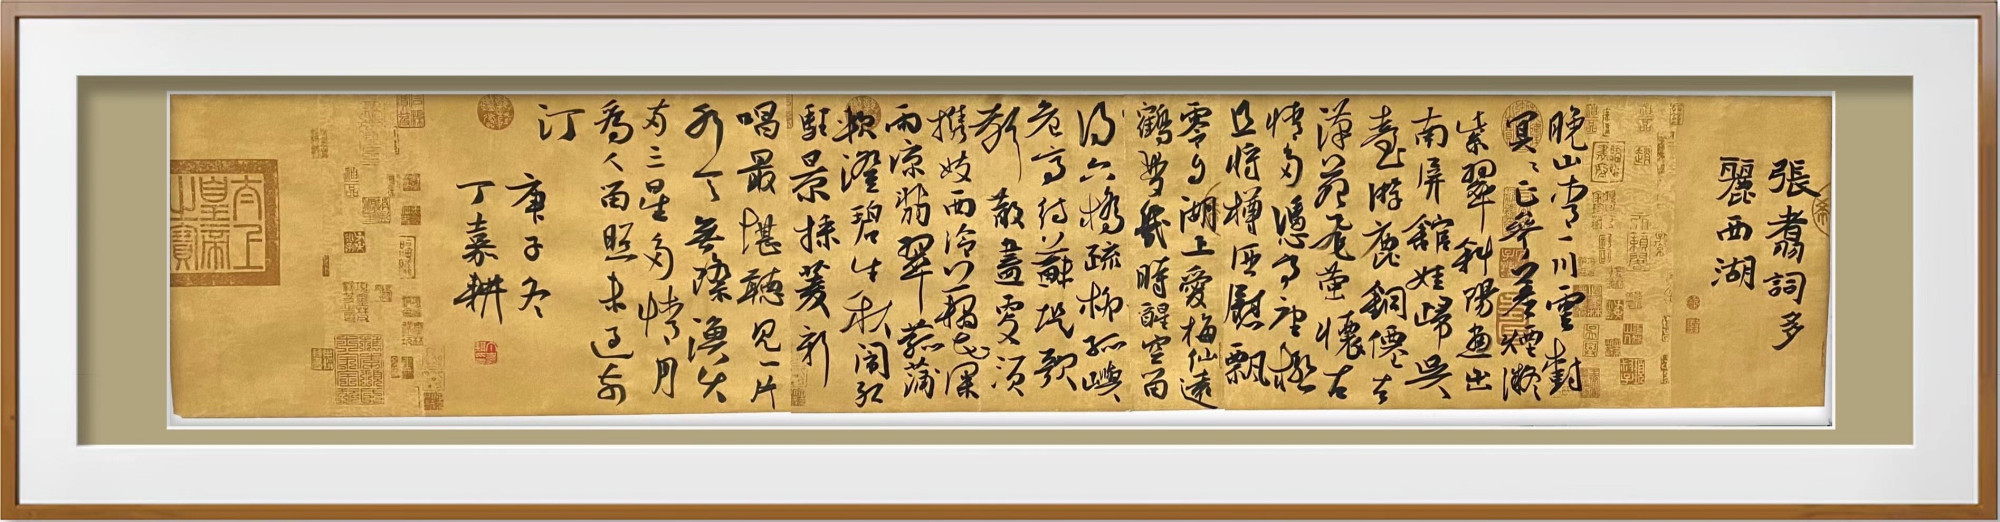 張翥詞多
麗西湖
晚山青一川雲樹
冥々正參差煙凝
紫翠斜陽畫出
南屏館娃歸吳
臺游鹿銅僊去
漢苑飛螢懷古
情多憑高望極
且將樽酒慰飄
零自湖上愛梅仙遠
鶴夢幾時醒空留
得六橋疏柳孤嶼
危亭待蘇堤歌
聲散盡更須
攜妓西泠藕花深
雨涼翡翠菰蒲
軟澄碧生秋鬧紅
駐景採菱新
唱最堪聽見一片
水天無際漁火
兩三星多情月
為人留照未過前
汀
庚子冬
丁嘉耕
太上皇帝之寶